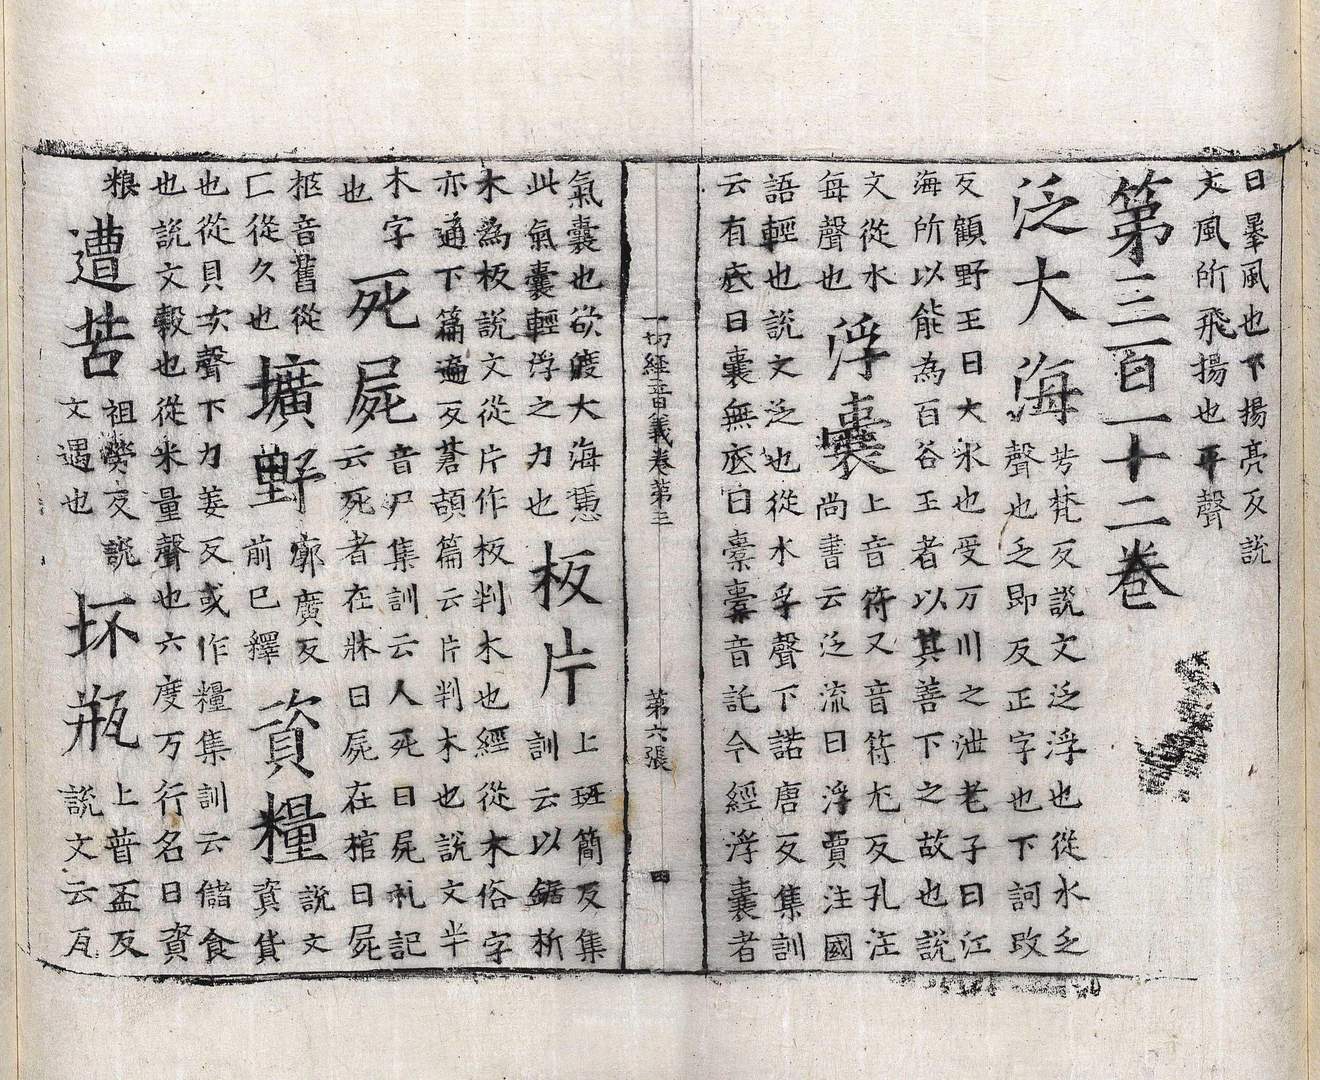 曰㬥風也下揚亮反説
文風所飛揚也平聲
第三百一十二卷
泛大海
芳梵反説文泛浮也從水乏
聲也乏即反正字也下訶改
反顧野王曰大水也受万川之泄老子曰江
海所以能為百谷王者以其善下之故也説
文從水
每聲也
浮囊
上音符又音符尤反孔注
尚書云泛流曰浮賈注國
語輕也説文泛也從水孚聲下諾唐反集訓
云有底曰囊無底曰橐橐音託今經浮囊者
一切經音義卷第三 第六張 四
氣囊也欲渡大海憑
此氣囊輕浮之力也
板片
上班簡反集
訓云以鋸析
木為板説文從片作板判木也經從木俗字
亦通下篇遍反蒼頡篇云片判木也説文半
木字
也
死屍
音尸集訓云人死曰屍礼記
云死者在牀曰屍在棺曰屍
柩音舊從
匚從久也
壙野
廓廣反
前已釋
資糧
説文
資貨
也從貝次聲下力姜反或作糧集訓云儲食
也説文糓也從米量聲也六度万行名曰資
粮
遭苦
祖勞反説
文遇也
坏瓶
上普盃反
説文云瓦